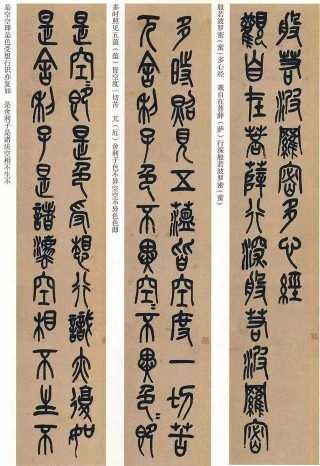 般若波羅密多心經
觀自在菩薩行深般若波羅密
般若波罗密(蜜)多心经 观自在菩薛(萨)行深般若波罗密(蜜)
多時照見五薀皆空度一切苦
舍利子色不異空=不異色=即
多时照见五薀(蕴)皆空度一切苦 (厄)舍利子色不异空空不异色色即
是空=即是色受想行識亦復如
是舍利子是諸灋空相不生不
是空空即是色受想行识亦复如 是舍利子是诸法空相不生不